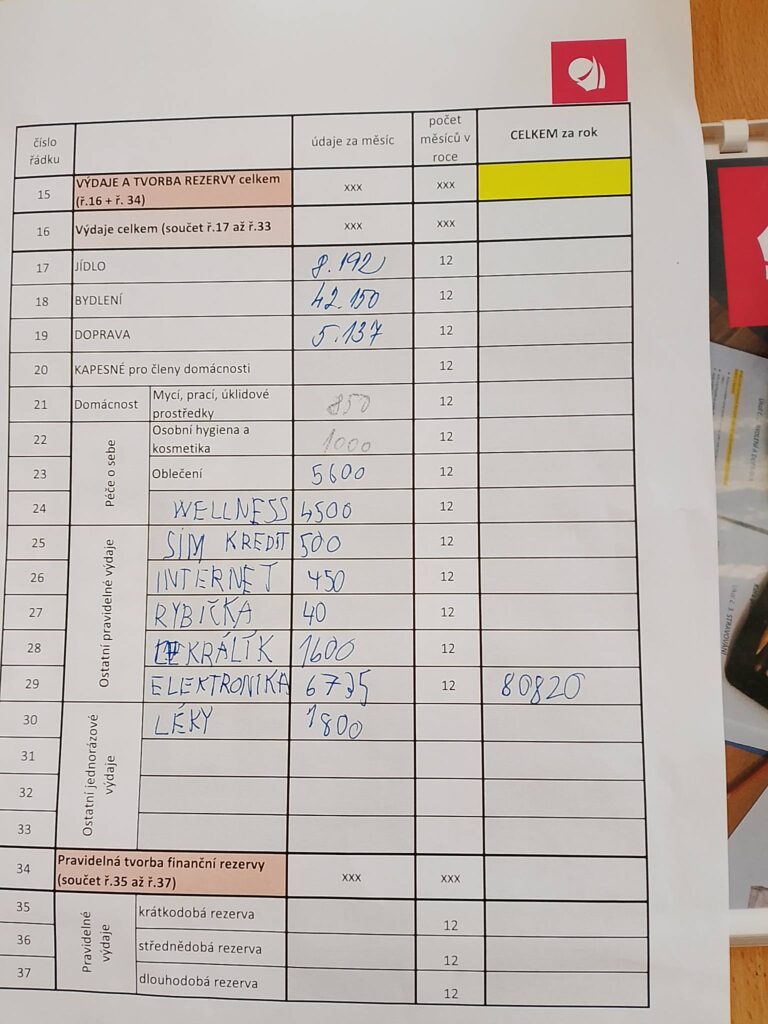 číslo řádku údaje za měsíc počet měsíců v roce CELKEM za rok
15 VÝDAJE A TVORBA REZERVY celkem (ř.16 + ř. 34) xxx xxx
16 Výdaje celkem (součet ř.17 až ř.33 xxx xxx
17 JÍDLO 8.192 12
18 BYDLENÍ 42.150 12
19 DOPRAVA 5.137 12
20 KAPESNÉ pro členy domácnosti 12
21 Domácnost Mycí, prací, úklidové prostředky 850 12
Péče o sebe
22 Osobní hygiena a kosmetika 1000 12
23 Oblečení 5600 12
24 WELLNESS 4500 12
Ostatní pravidelné výdaje
25 SIM KREDIT 500 12
26 INTERNET 450 12
27 RYBIČKA 40 12
28 KRÁLÍK 1600 12
29 ELEKTRONIKA 6735 12 80820
Ostatní jednorázové výdaje
30 LÉKY 1800
31
32
33
34 Pravidelná tvorba finanční rezervy (součet ř.35 až ř.37) xxx xxx
Pravidelné výdaje
35 krátkodobá rezerva 12
36 střednědobá rezerva 12
37 dlouhodobá rezerva 12